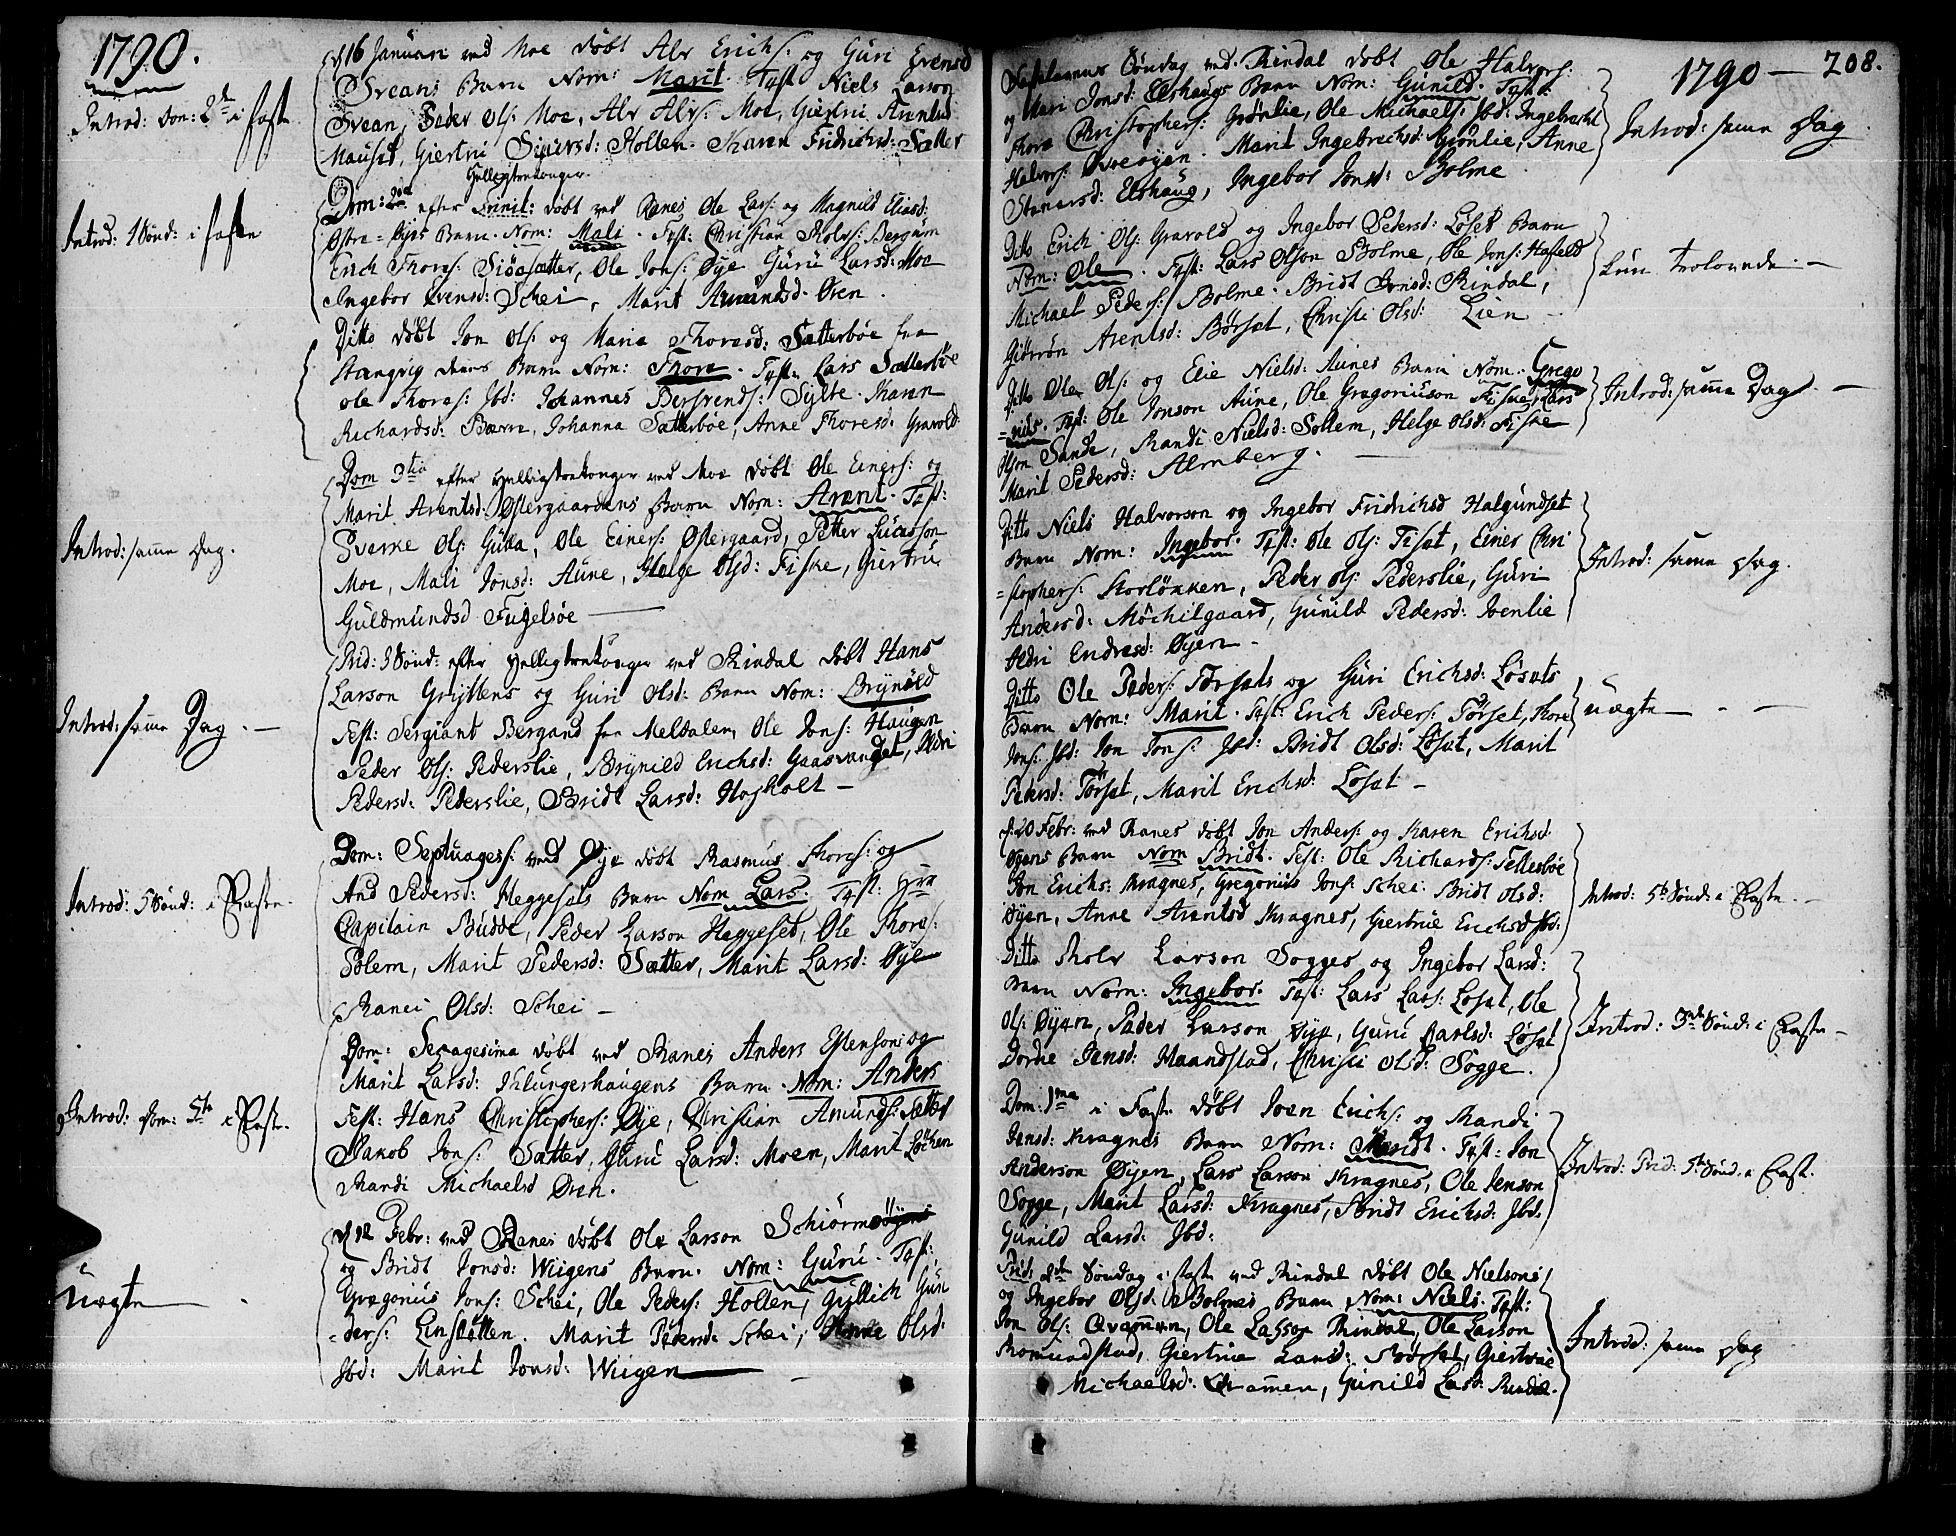 1790.
d 16 Januari ved Moe døbt Alv Erichs: og Guri Evensd
Sveans Barn Nom: Marit. Test: Niels Larson
Svean, Peder Ols: Moe, Alv Alvs: Moe, Giertru Arentsd
Mauset, Giertru Siversd: Hollen. Karen Fridrichsd: Sætter
Introd: Dom: 2de i Faste
Helligtrekonger
Dom: 2da efter Trinit: døbt ved Ranes Ole Lars: og Magnild Eliasd:
Østre-Øyes Barn. Nom: Mali. Test: Christian Rolvs: Bergum
Erich Thores: Siøesætter, Ole Jons: Øye Guru Larsd: Moe
Ingebor Evensd: Schei, Marit Amundsd. Øren.
Introd: 1 Sønd: i Faste
Ditto døbt Jon Ols: og Maria Thoresd: Sætterbøe fra
Stangvig deres Barn Nom: Thore. Test: Lars Sætterbøe
Ole Thores: Ibd: Johannes Bersvends: Sylte. Karen
Richardsd: Bærn, Johanna Sætterbøe, Anne Thoresd. Gravold.
Dom 3tia efter Helligtrekonger ved Moe døbt Ole Einers: og
Marit Arentsd: Østergaardens Barn Nom: Arent. Test:
Sverke Ols: Gulla, Ole Einers: Østergaard, Petter Lucasson
Moe, Mali Jonsd: Aune, Helge Olsd: Fiske, Giertru
Guldmundsd Fugelsøe
Introd: samme Dag.
Prid: 3 Sønd: efter Helligtrekonger ved Rindal døbt Hans
Larson Gryttens og Guri Olsd: Barn Nom: Brynild
Test: Sergiant Bergand fra Meldalen, Ole Jons: Haugen
Peder Ols: Pederslie, Brynild Erichsd: Gaasvandet, Eldri
Pedersd: Pederslie, Bridt Larsd: Hogholt
Introd: samme Dag.
Dom: Septuages: ved Øye døbt Rasmus Thores: og
And Pedersd: Heggesets Barn Nom Lars. Test: Hra
Capitain Budde, Peder Larson Heggeset, Ole Thores:
Solem, Marit Pedersd: Sætter, Marit Larsd: Øye
Ranei Olsd: Schei
Introd: 5 Sønd: i Faste.
Dom: Sexagesima døbt ved Ranes Anders Estensons og
Marit Larsd: Klungerhaugens Barn. Nom: Anders
Test: Hans Christophers: Øye, Christian Amunds: Sætter
Jakob Jons: Sætter, Guru Larsd: Moen, Marit Løcken
Randi Michaelsd Øren.
Introd: Dom: 5te i Faste.
d 12 Febr: ved Ranes døbt Ole Larson Schiørmøøyens
og Bridt Jonsd: Wiigens Barn. Nom: Guru. Test:
Gregorius Jons: Schei, Ole Peders: Hollen, Gullich Gun
=ders: Enstetten. Marit Pedersd: Schei, Anne Olsd:
Ibd: Marit Jonsd: Wiigen
Uægte
1790 — 208.
Fastelavns Søndag ved Rindal døbt Ole Halvors:
og Mari Jonsd: Elshaugs Barn Nom: Gunild. Test:
Thore Christophers: Grønlie, Ole Michaels: Ibd: Ingebricht
Halvors: Øvreøyen. Marit Ingebrichsd: Grønlie, Anne
Steenersd: Elshaug, Ingebor Jonsd: Bolme
Introd: samme Dag
Ditto Erich Ols: Gravold og Ingebor Pedersd: Løset Barn
Nom: Ole. Test: Lars Olson Bolme, Ole Jons: Hafeld
Michael Peders: Bolme. Bridt Jonsd: Rindal,
Giørrøn Arentsd: Børset, Christi Olsd: Lien
kun trolovede.
Ditto Ole Ols: og Elie Nielsd: Aunes Barn Nom. Grego
=rius. Test: Ole Jonson Aune, Ole Gregoriuson Fiske, Lars
Olson Sande, Randi Nielsd: Sollem, Helge Olsd: Fiske
Marit Pedersd: Almberg.
Introd: samme Dag
Ditto Niels Halvorson og Ingebor Fridrichsd Halgundset
Barn Nom: Ingebor. Test: Ole Ols: Tiset, Einer Chri
=stophers: Storløkken, Peder Ols: Pederslie, Guri
Andersd: Möchilgaard, Gunild Pedersd: Ivenlie
Aldri Endresd: Øyen
Introd: samme Dag.
Ditto Ole Peders: Førsets og Guri Erichsd: Løsets
Barn Nom: Marit. Test: Erich Peders: Førset, Thore
Jons: Ibd: Jon Jons: Ibd: Bridt Olsd: Løset, Marit
Pedersd: Førset, Marit Erichsd: Løset
uægte
d: 20 Febr: ved Ranes døbt Jon Anders: og Karen Erichsd.
Øyens Barn Nom Bridt. Test: Ole Richards: Tellesbøe
Jon Erichs: Kragnes, Gregorius Jons: Schei. Bridt Olsd:
Øyen, Anne Arentsd Kragnes, Giertrue Erichsd Ibd:
Introd: 5te Sønd: i Faste.
Ditto Rolv Larson Sogges og Ingebor Larsd:
Barn Nom: Ingebor. Test: Lars Lars: Løset, Ole
Ols: Øyen, Peder Larson Øye, Guru Carlsd: Løset
Dorde Jensd: Haandstad, Christi Olsd: Sogge.
Introd: 3de Sønd: i Faste
Dom: 1ma i Faste døbt Iven Erichs: og Randi
Jensd: Kragnes Barn Nom: Randi. Test: Jon
Anderson Øyen, Lars Larson Kragnes, Ole Jenson
Sogge, Marit Larsd: Kragnes, Bridt Erichsd: Ibd.
Gunild Larsd: Ibd:
Introd: Prid: 5te Sønd: i Faste.
Prid: 2den Søndag i Faste ved Rindal døbt Ole Nielsons
og Ingebor Olsd: Bolmes Barn Nom: Niels. Test:
Jon Ols: Qvammen, Ole Lasson Rindal, Ole Larson
Romundstad, Giertrue Larsd: Børset, Giertrue
Michaelsd: Qvammen, Gunild Lasd: Rindal.
Introd: samme Dag